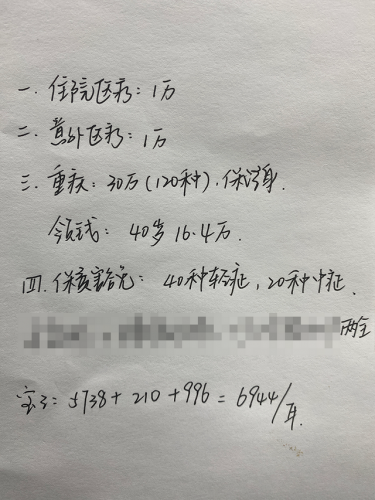 一.住院医疗:1万
二.意外医疗:1万
三.重疾:30万(120种).保终身.
领钱:40岁 16.4万.
四.保费豁免:40种轻症,20种中症.
两全
宝宝:5738+210+996=6944/年.